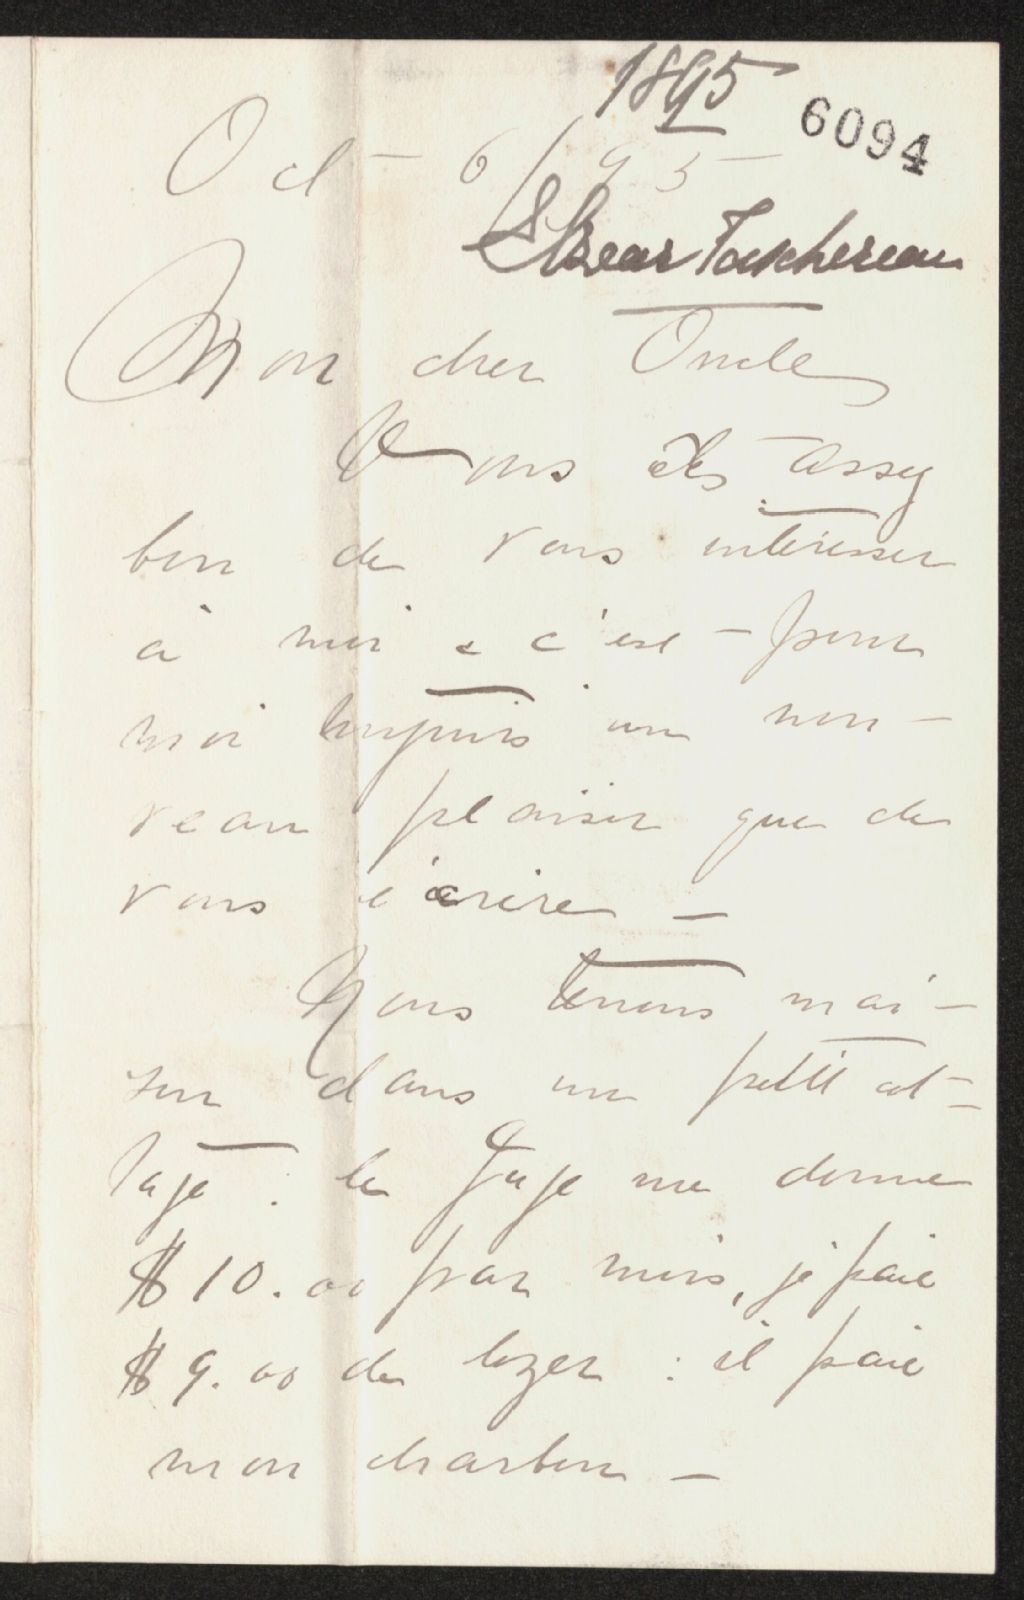 1895
6094
Oct - 6/95 -
Elzear Taschereau
Mon cher Oncle
Vous êtes assez
bon de vous intéresser
à moi & c'est - pour
moi toujours un nou-
veau plaisir que de
vous écrire -
Nous tenons mai-
son dans un petit cot-
tage : le Juge me donne
$10.00 par mois, je paie
$9.00 de loyer : il paie
mon charbon -